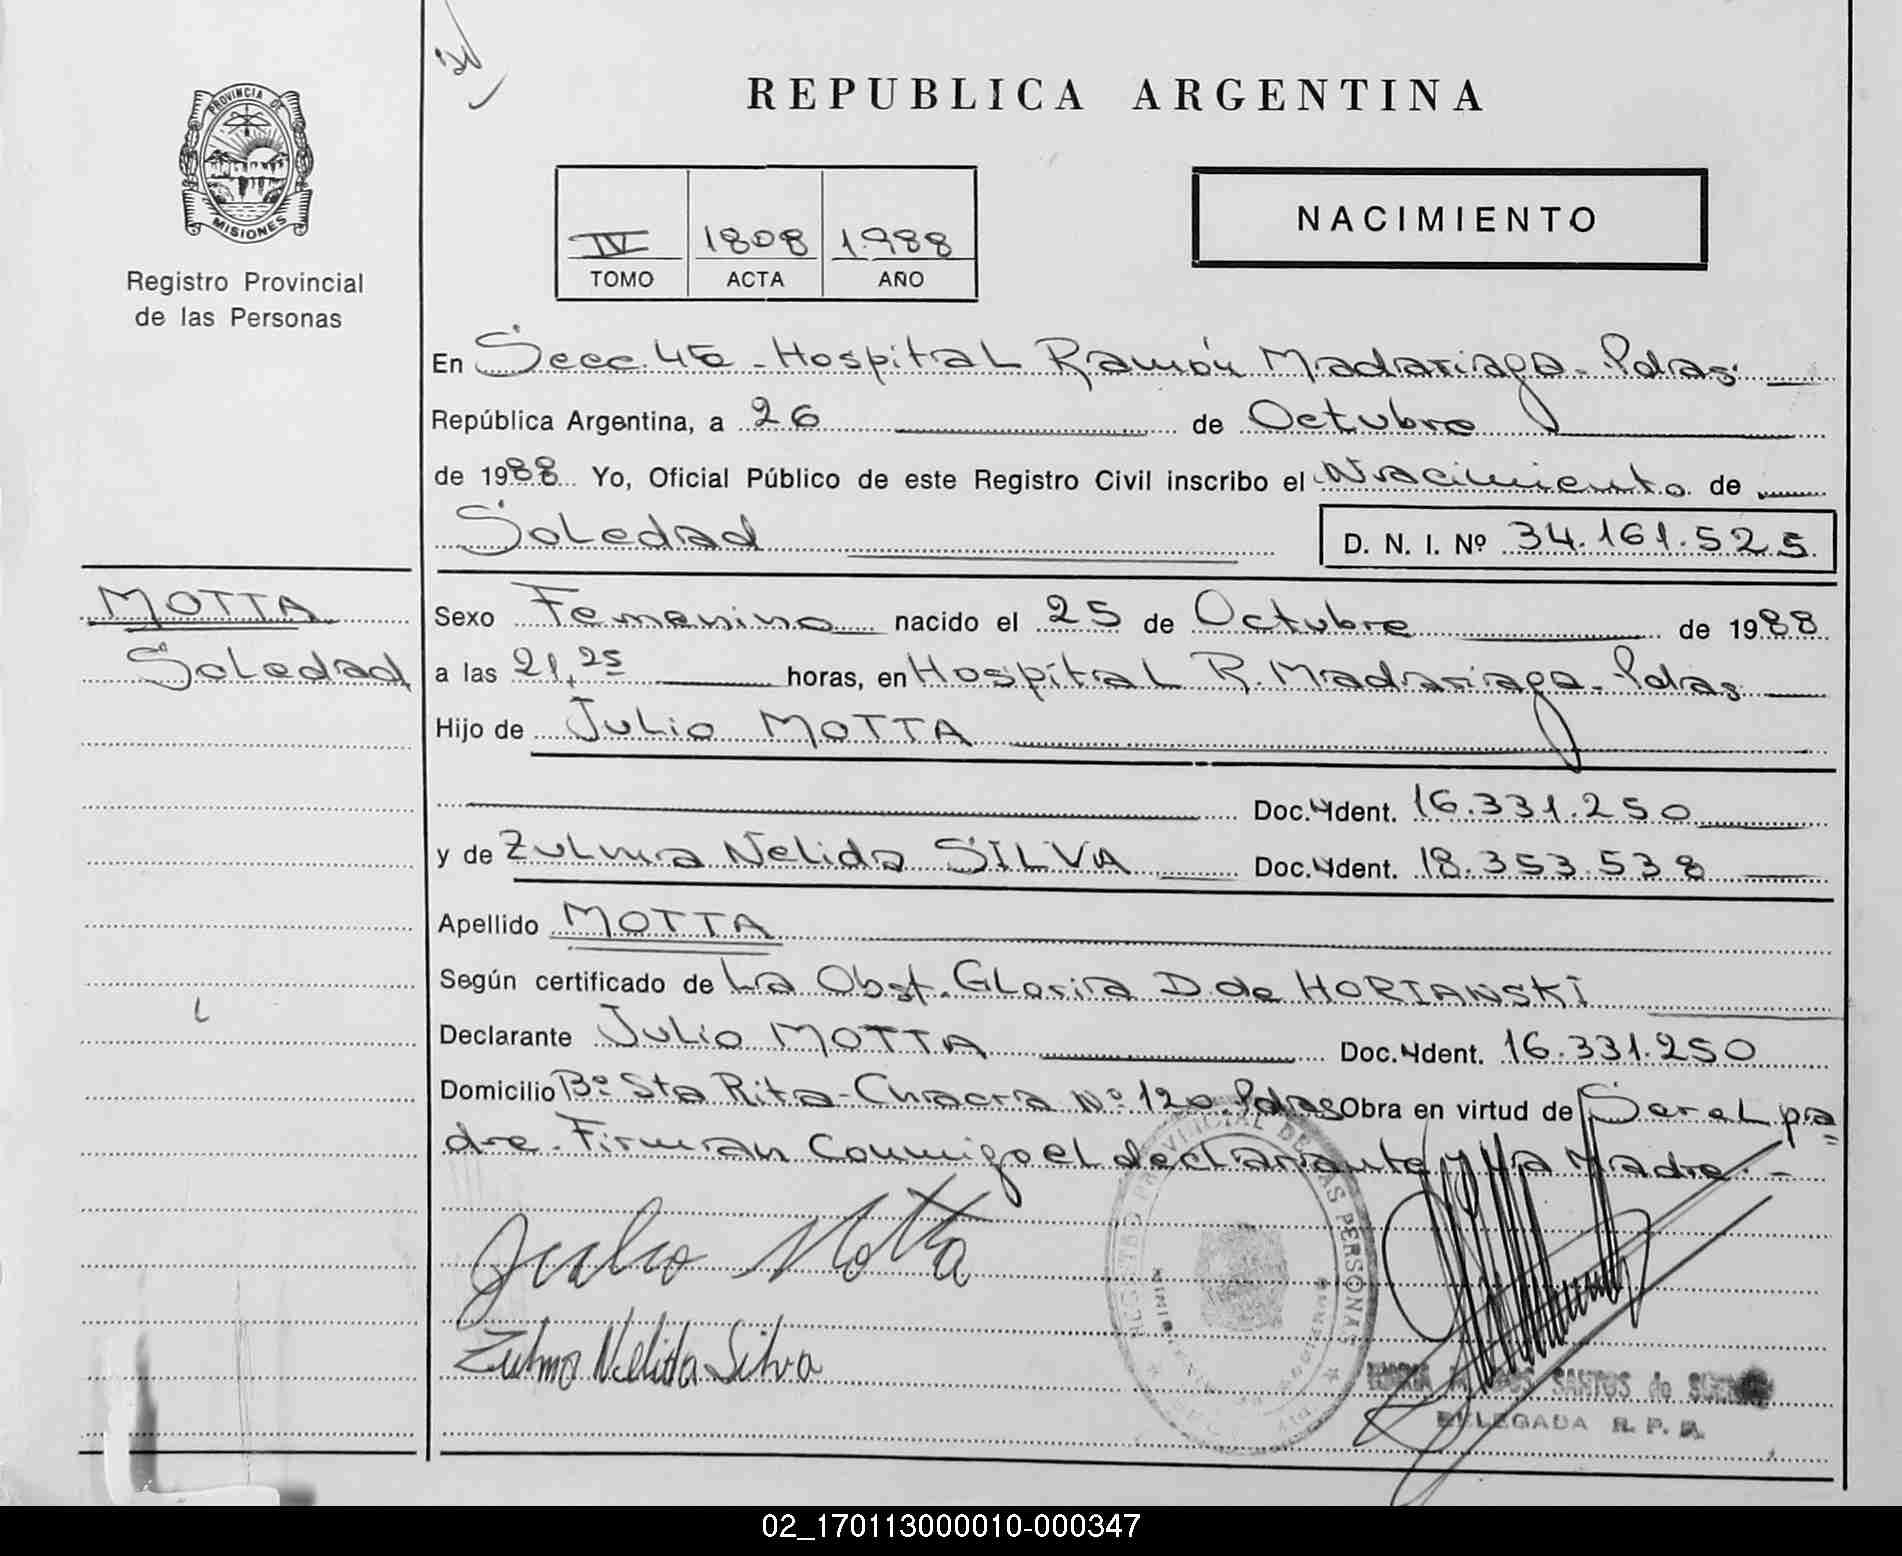 PROVINCIA DE
MISIONES
Registro Provincial
de las Personas
MOTTA
Soledad
REPUBLICA ARGENTINA
IV 1808 1988
TOMO ACTA AÑO
NACIMIENTO
En Secc. 4ta - Hospital Ramón Madariaga - Pdas.
República Argentina, a 26 de Octubre
de 1988 Yo, Oficial Público de este Registro Civil inscribo el Nacimiento de
Soledad D. N. I. Nº 34.161.525
Sexo Femenino nacido el 25 de Octubre de 1988
a las 21,25 horas, en Hospital R. Madariaga - Pdas.
Hijo de Julio MOTTA
Doc. Ident. 16.331.250
y de Zulma Nelida SILVA Doc. Ident. 18.353.538
Apellido MOTTA
Según certificado de La Obst. Gloria D. de HORIANSKI
Declarante Julio MOTTA Doc. Ident. 16.331.250
Domicilio Bº Sta Rita - Chacra Nº 120. Pdas Obra en virtud de Ser el pa=
dre. Firman Conmigo el declarante y la Madre. -
Julio Motta
Zulma Nelida Silva
REGISTRO PROVINCIAL DE LAS PERSONAS
SANTOS de
DELEGADA R. P. P.
02_170113000010-000347